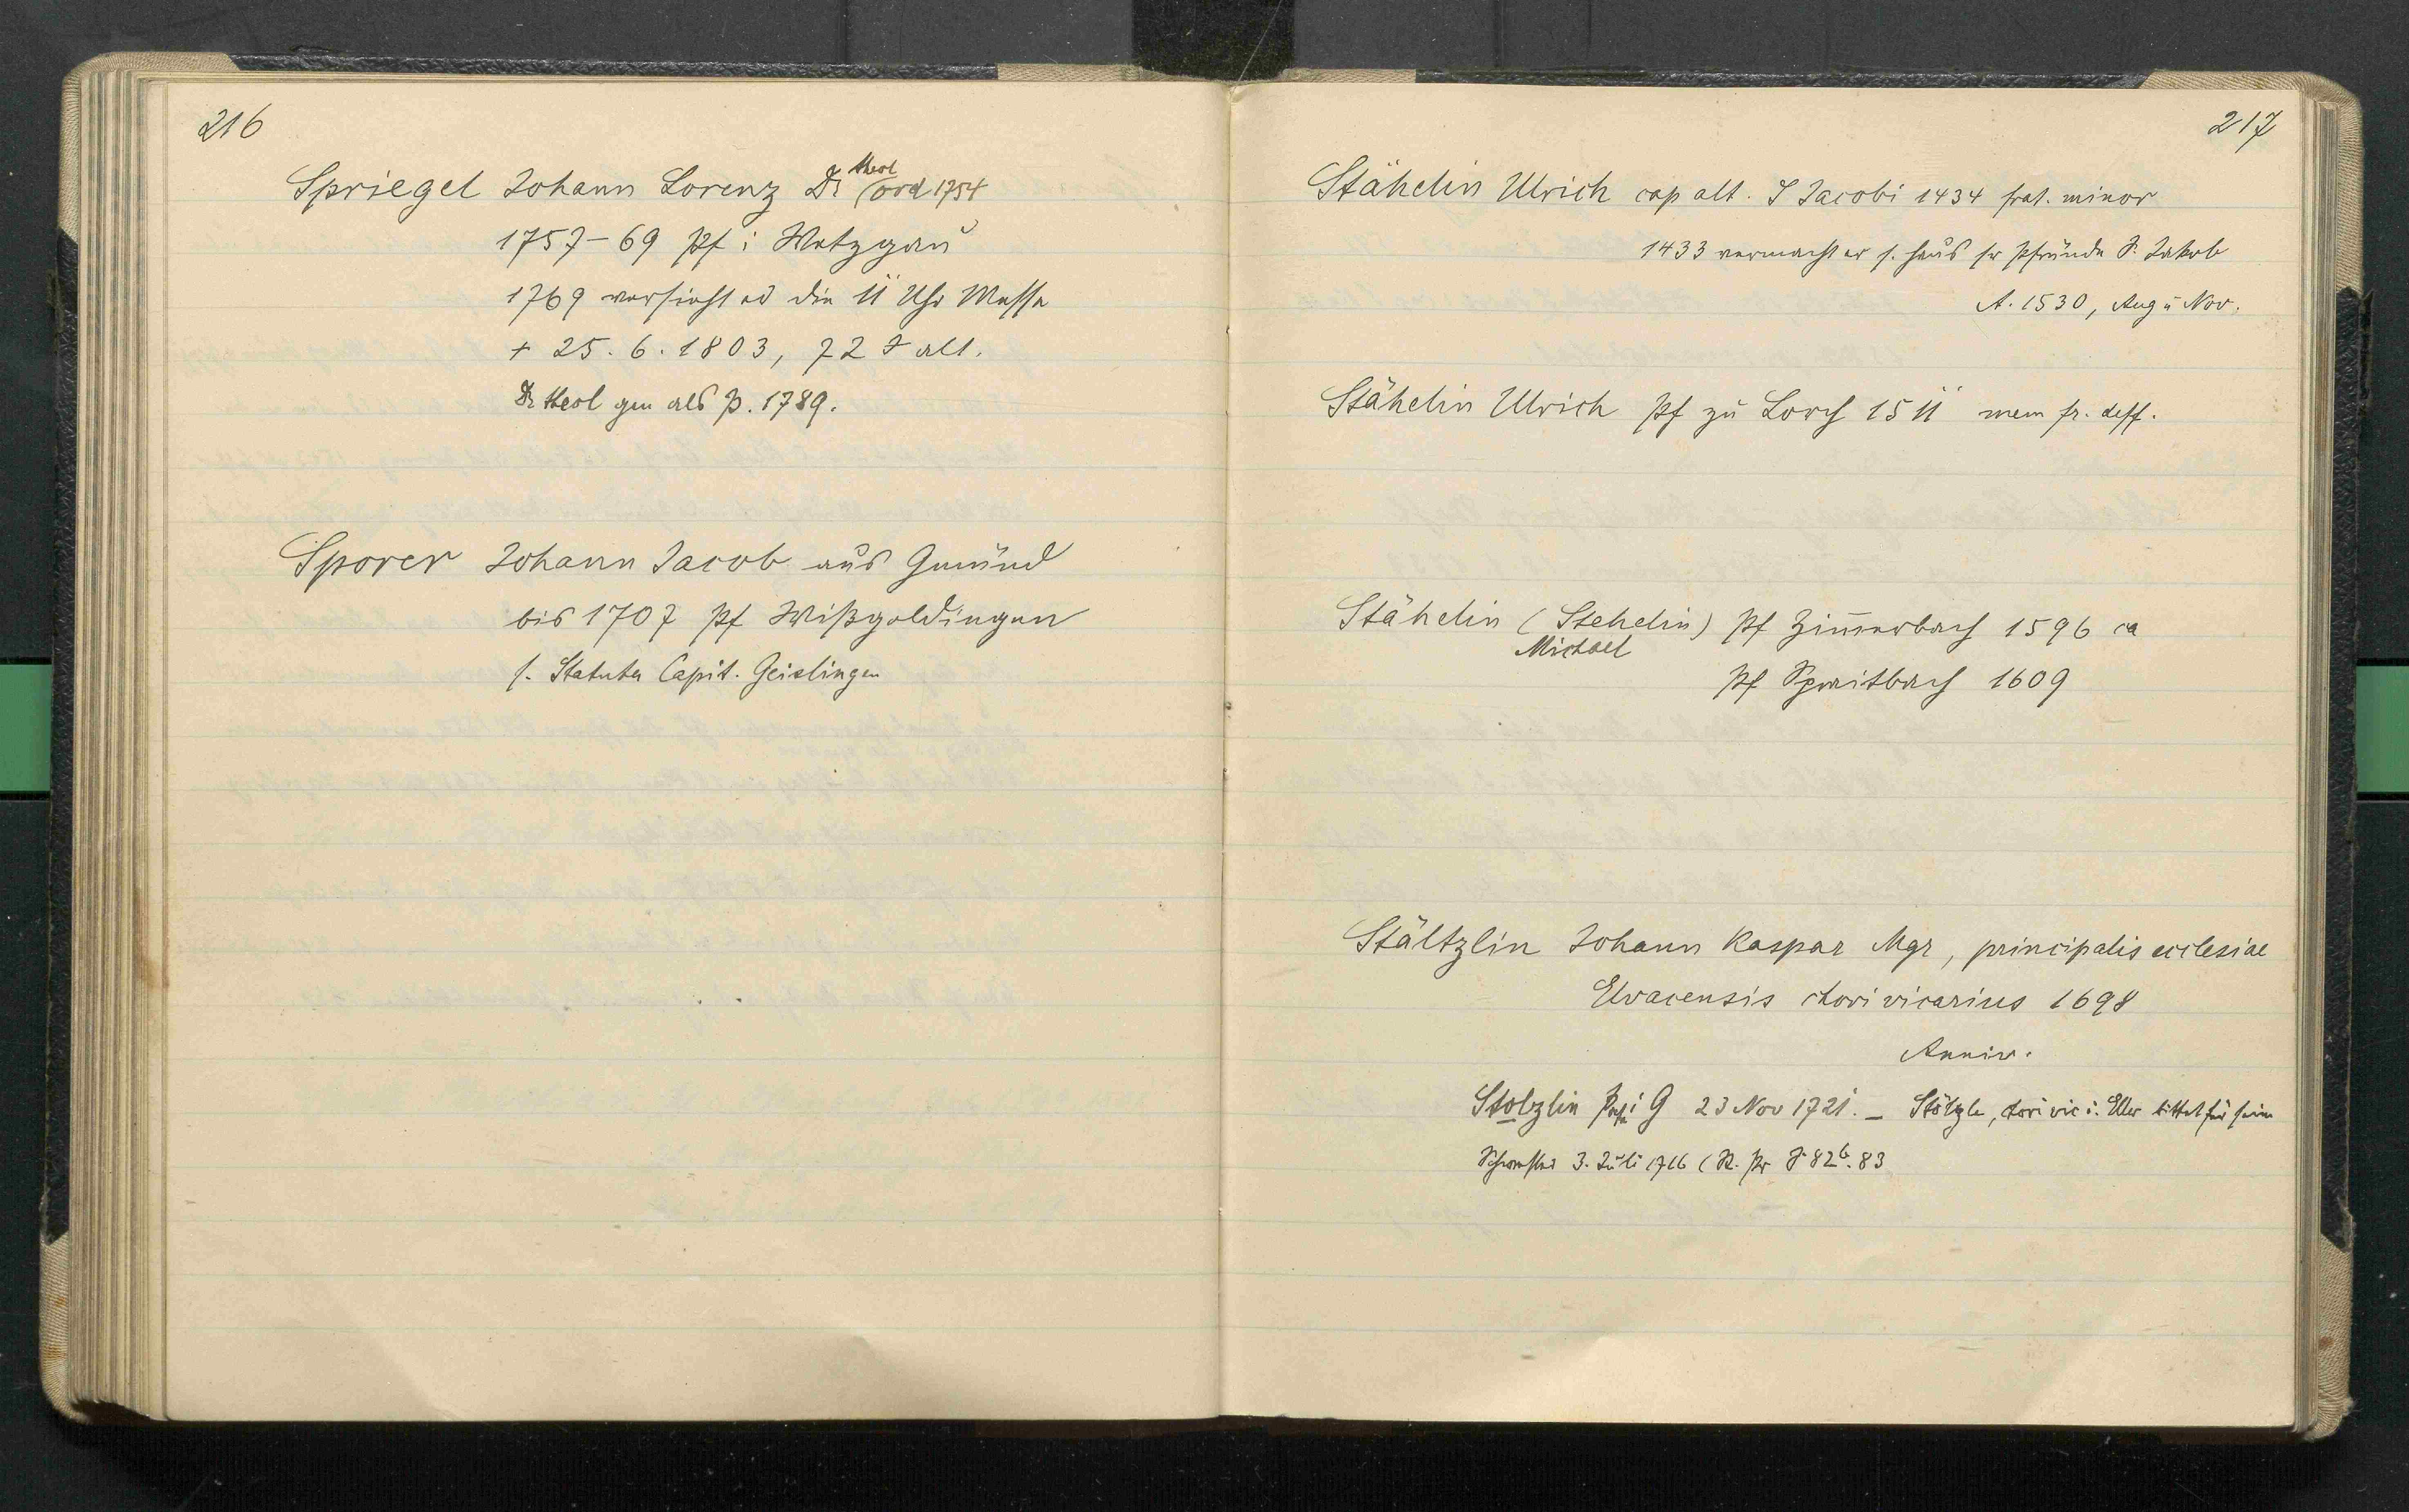 216
Spriegel Johann Lorenz Dr theol (ord 1754
1757-69 Pf i Wetzgau
1769 versieht er die 11 Uhr Messe
+ 25. 6. 1803, 72 J alt.
Dr theol gen als P. 1789.
Sporer Johann Jacob aus Gmünd
bis 1707 Pf Wißgoldingen
s. Statuta Capit. Geislingen
217
Stähelin Ulrich cap alt. S Jacobi 1434 frat. minor
1433 vermacht er s. Haus sr Pfründe S. Jakob
A. 1530, Aug u Nov.
Stähelin Ulrich Pf zu Lorch 1511 mem fr. deff.
Stähelin (Stehelin) Pf Zimmerbach 1596 ca
Michael
Pf Spraitbach 1609
Stältzlin Johann Kaspar Mgr, principalis ecclesiae
Elvacensis chori vicarius 1698
Anniv.
Stolzlin i G 23 Nov 1721. - Stölzle, chori vic i. Ellw bittet für seine
Schwester 3. Juli 1716 (R. Pr S 82b. 83